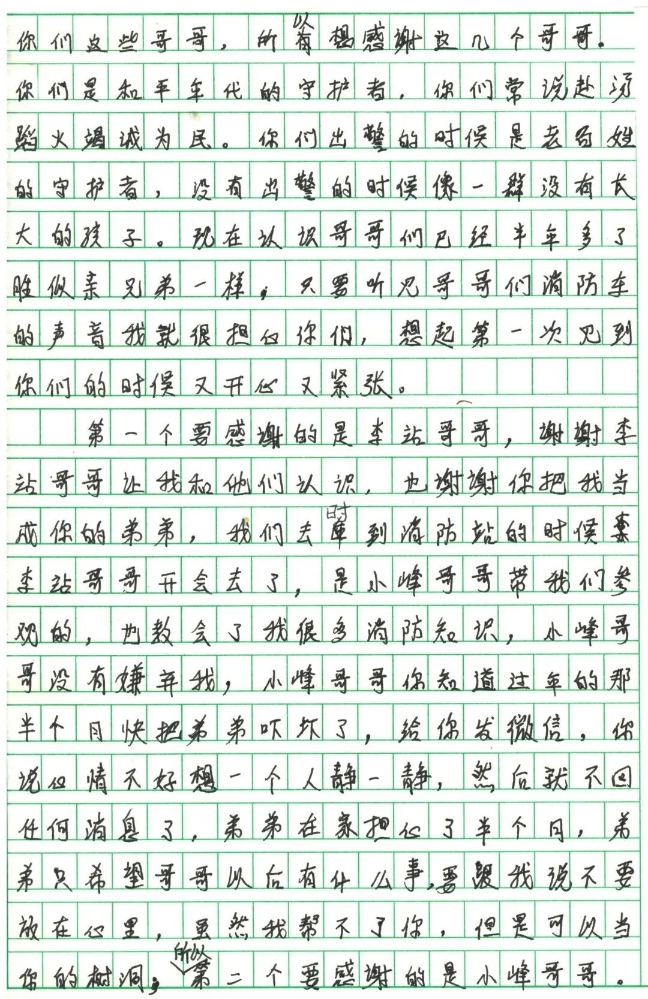 你们这些哥哥，所以有想感谢这几个哥哥。
你们是和平年代的守护者，你们常说赴汤
蹈火竭诚为民。你们出警的时候是老百姓
的守护者，没有出警的时候像一群没有长
大的孩子。现在认识哥哥们已经半年多了
胜似亲兄弟一样，只要听见哥哥们消防车
的声音我就很担心你们，想起第一次见到
你们的时候又开心又紧张。
第一个要感谢的是李站哥哥，谢谢李
站哥哥让我和他们认识，也谢谢你把我当
成你的弟弟，我们去时到消防站的时候
李站哥哥开会去了，是小峰哥哥带我们参
观的，也教会了我很多消防知识，小峰哥
哥没有嫌弃我，小峰哥哥你知道过年的那
半个月快把弟弟吓坏了，给你发微信，你
说心情不好想一个人静一静，然后就不回
任何消息了，弟弟在家担心了半个月，弟
弟只希望哥哥以后有什么事，要跟我说不要
放在心里，虽然我帮不了你，但是可以当
你的树洞，所以第二个要感谢的是小峰哥哥。